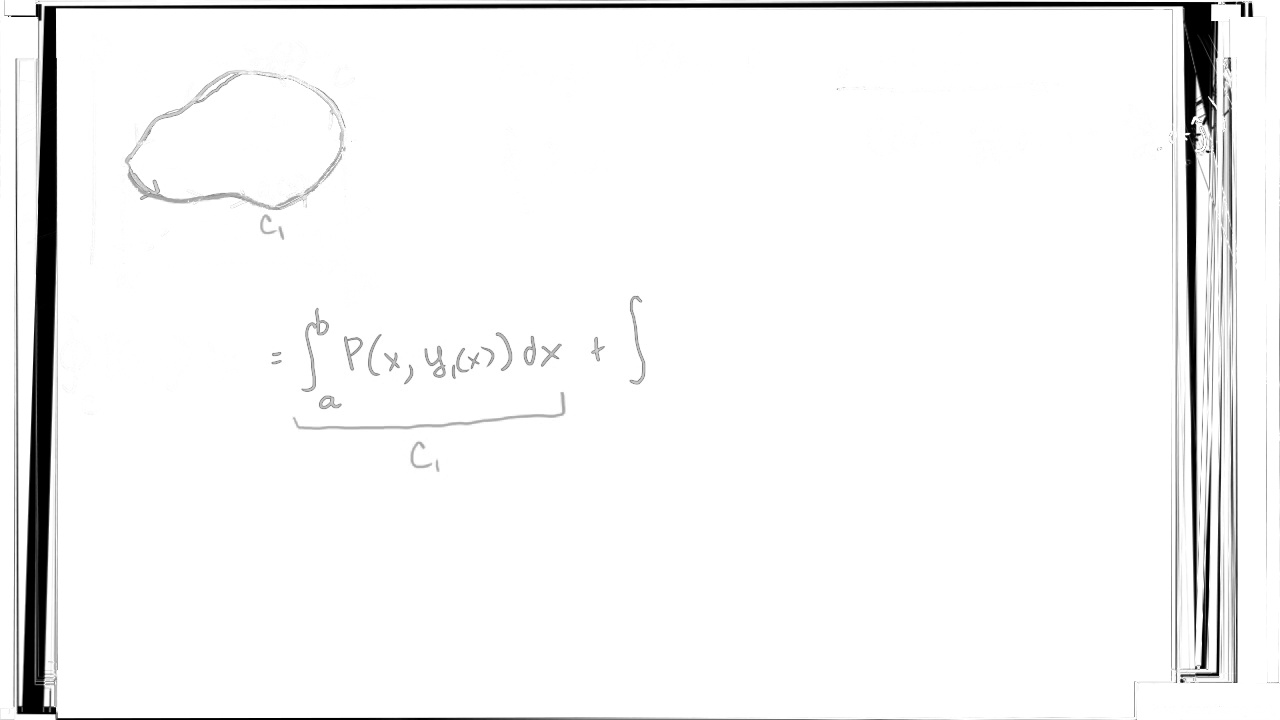 C₁
= ∫ₐᵇ P(x, y₁(x)) dx + ∫
C₁